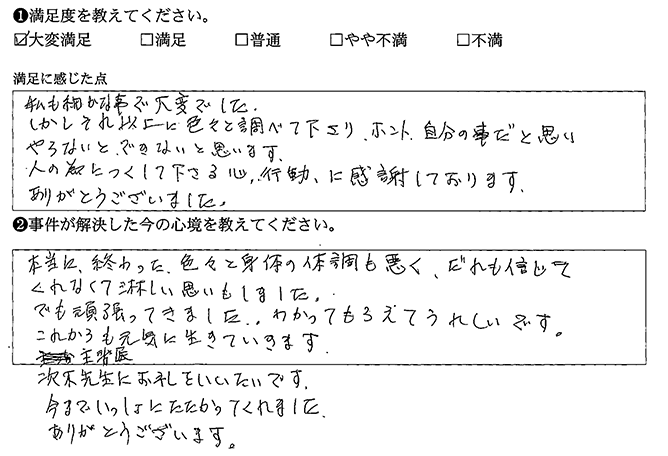 ❶満足度を教えてください。
☑大変満足 □満足 □普通 □やや不満 □不満
満足に感じた点
私も細かな事で大変でした.
しかしそれ以上に色々と調べて下さり、ホント、自分の事だと思い
やらないと、できないと思います.
人の為につくして下さる心,行動、に感謝しております.
ありがとうございました。
❷事件が解決した今の心境を教えてください。
本当に、終わった、色々と身体の体調も悪く、だれも信じて
くれなくて淋しい思いもしました.
でも頑張ってきました.. わかってもらえてうれしいです。
これからも元気に生きていきます.
先生にお礼をいいたいです.
今までいっしょにたたかってくれました.
ありがとうございます。